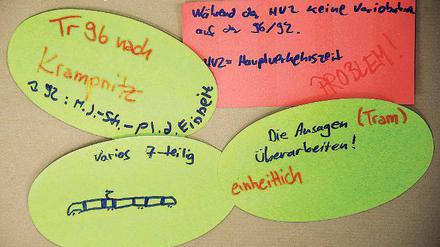 Tr 96 nach
Krampnitz
92: M.J.-Str. - Pl. d. Einheit
Während der HVZ keine Variobahnen
auf der 96/92.
HVZ = Hauptverkehrszeit
PROBLEM!
Varios 7-teilig
Die Ansagen (Tram)
überarbeiten!
einheitlich